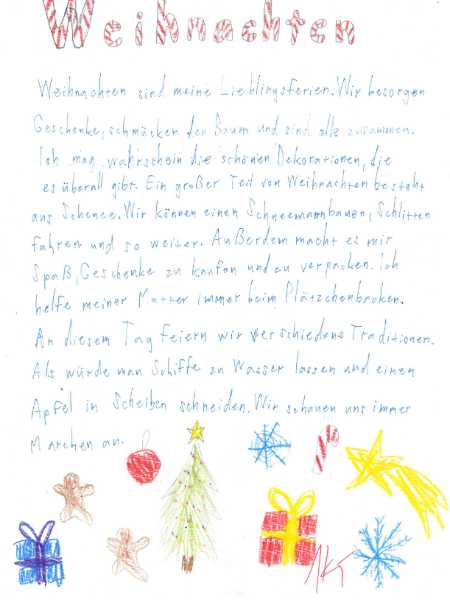 Weihnachten
Weihnachten sind meine Lieblingsferien. Wir besorgen
Geschenke, schmücken den Baum und sind alle zusammen.
Ich mag wahrschein die schönen Dekorationen, die
es überall gibt. Ein großer Teil von Weihnachten besteht
aus Schenee. Wir können einen Schneemann bauen, Schlitten
fahren und so weiter. Außerdem macht es mir
Spaß, Geschenke zu kaufen und zu verpacken. Ich
helfe meiner Mutter immer beim Plätzchenbacken.
An diesem Tag feiern wir verschiedene Traditionen.
Als würde man Schiffe zu Wasser lassen und einen
Apfel in Scheiben schneiden. Wir schauen uns immer
Märchen an.